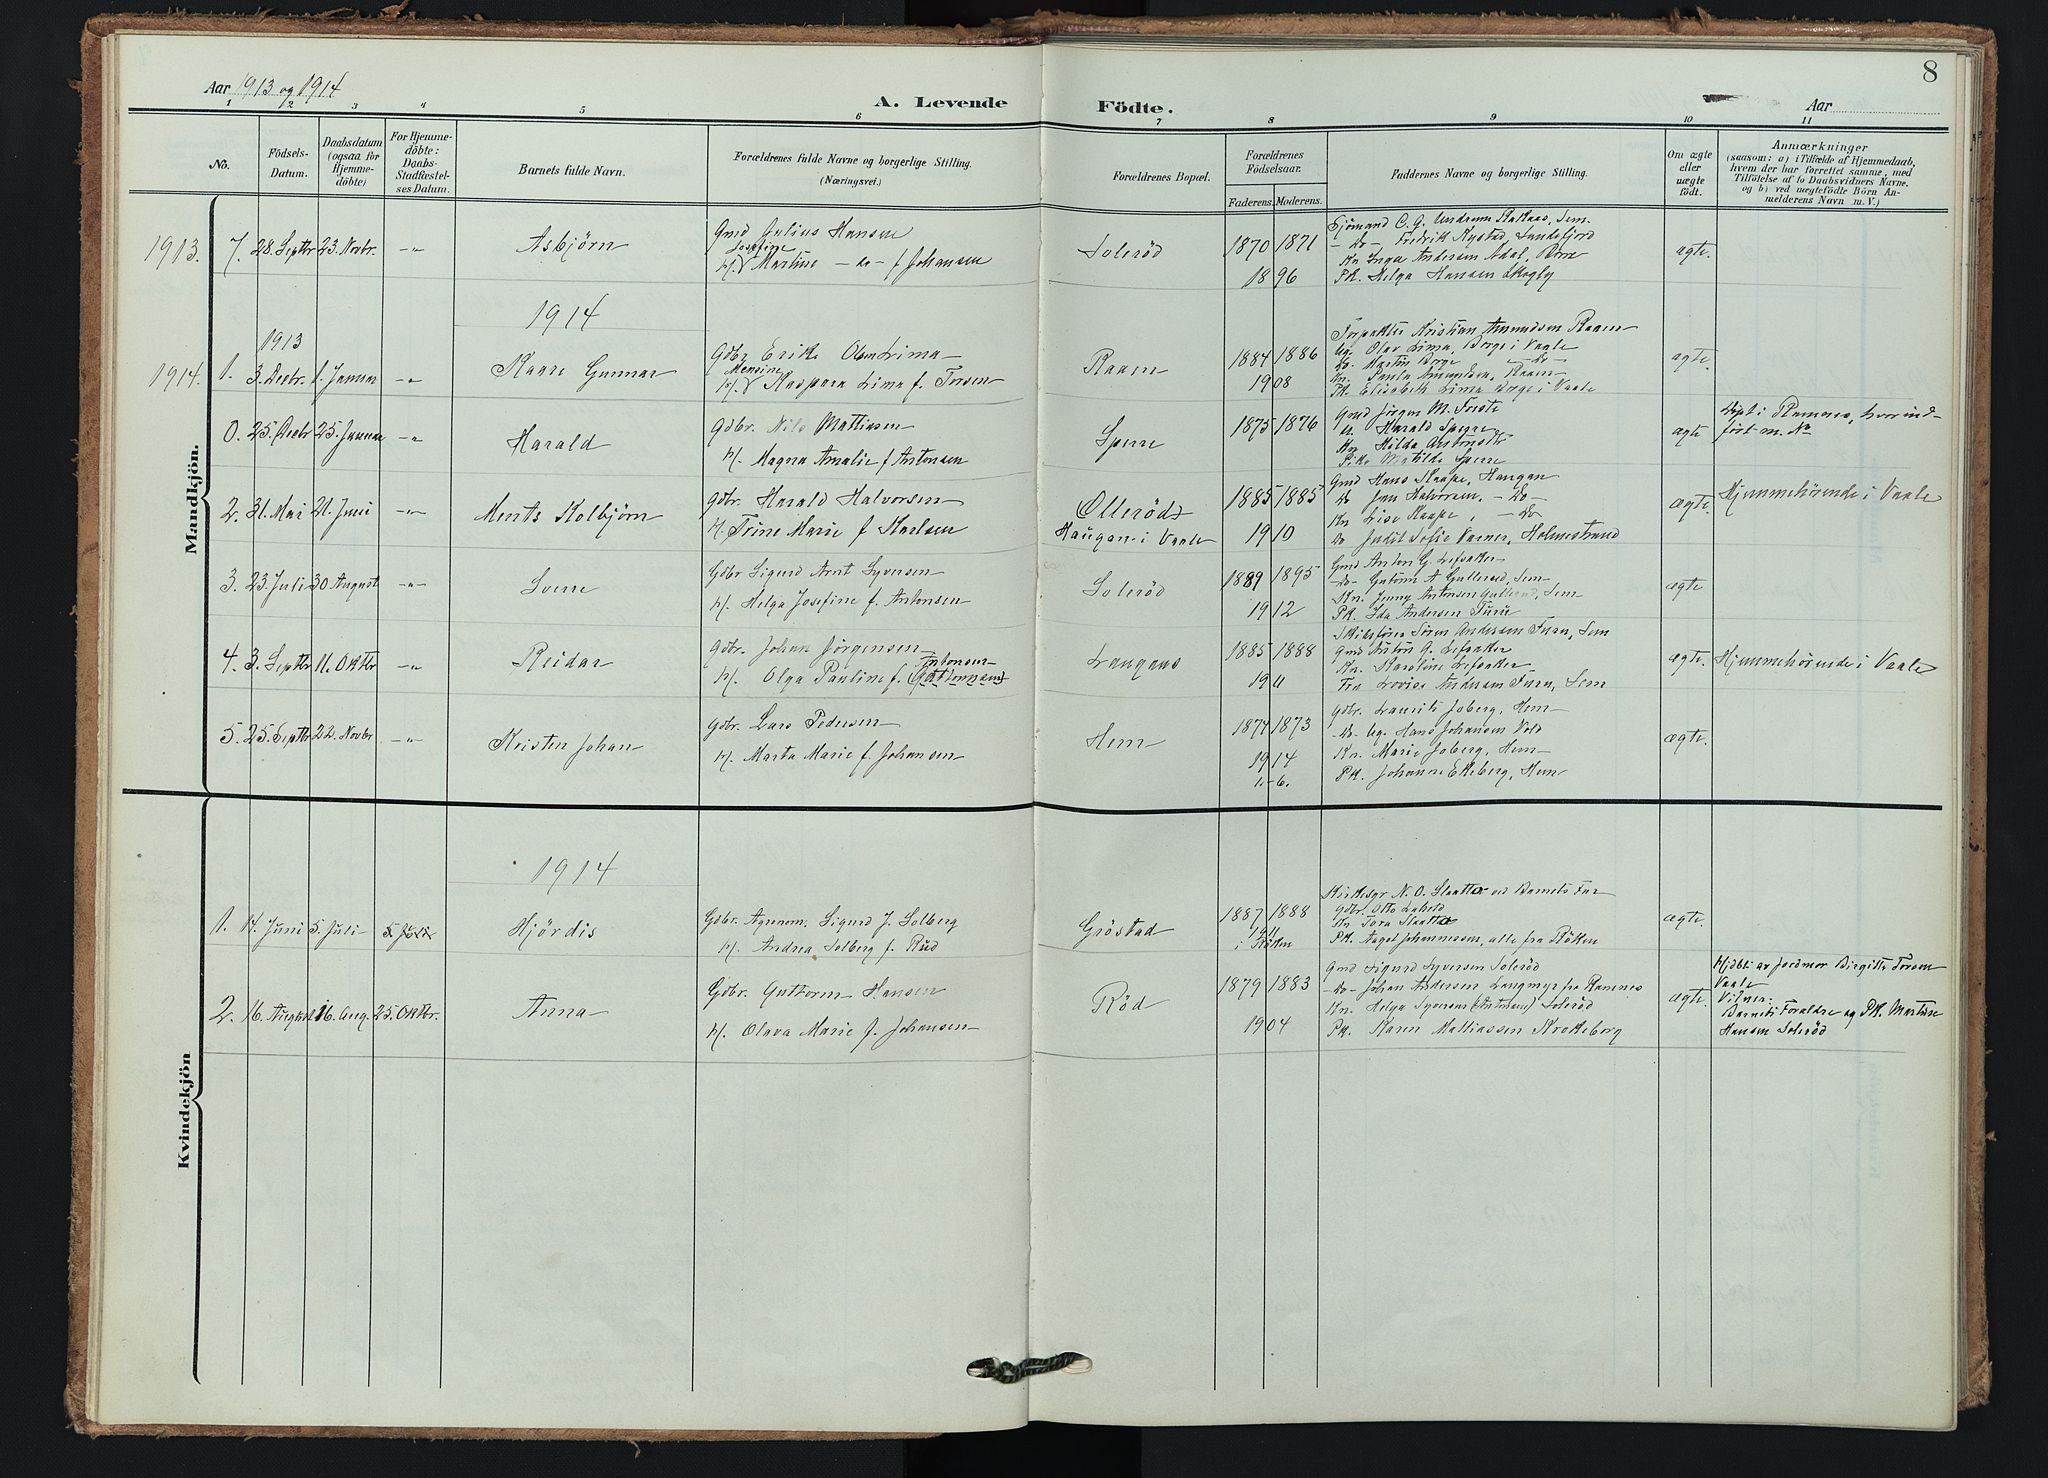 Aar 1913 og 1914
A. Levende Födte.
Aar
8
1 2 3 4 5 6 7 8 9 10 11
No.
Födsels-Datum.
Daabsdatum (ogsaa for Hjemme-döbte)
For Hjemme-döbte: Daabs-Stadfæstel-ses Datum.
Barnets fulde Navn.
Forældrenes fulde Navne og borgerlige Stilling. (Næringsvei.)
Forældrenes Bopæl.
Forældrenes Födselsaar.
Faderens. Moderens.
Faddernes Navne og borgerlige Stilling.
Om ægte eller uægte födt.
Anmærkninger
(saasom: a) i Tilfælde af Hjemmedaab, hvem der har forrettet samme, med Tilföielse af to Daabsvidners Navne, og b) ved uægtefödte Börn An-melderens Navn m. V.)
Mandkjön.
1913. 7. 28. Septbr 23. Novbr. -"- Asbjörn
Gmd Julius Hansen
Josefine
H. Martine -do- f Johansen
Solerød
1870 1871
1896
Sjömand C. G.
-do- Fredrik Nystad Sandefjord
Kn Inga Andersen Adal, Borre
Pk. Helga Hansen Skogly
ægte.
1914
1913
1914. 1. 3. Decbr. 1. Januar -"- Kaare Gunnar
Gdbr Erik Olsen Lima
Mensine
H. Kaspara Lima f. Torsen
Raaen
1884 1886
1908
Forpakter Kristian Amundsen Raaen
Ug. Olav Lima, Borge i Vaale
Do. Martin Borge -do-
Kn. Paula Amundsen, Raaen
Pk. Elisabeth Lima Borge i Vaale
ægte.
0. 25. Decbr 25. Januar -"- Harald
Gdbr. Nils Mattissen
H. Magna Amalie f Antonsen
Sperre
1875 1876
Gmd Jörgen M.
U. Harald Sperre
Kn Hilda
Pike Matilde Sperre
ægte
Döpt i Ramnes, hvor ind-
fört m. No
2. 31. Mai 21. Juni -"- Ments Kolbjörn
Gdbr. Harald Halvorsen
H. Trine Marie f Karlsen
Ollerød
Haugan i Vaale
1885 1885
1910
Gmd Hans Kaape, Haugan
Do Jan Halvorsen, -do-
Kn Lise Kaape, -do-
Do Judit Sofie Varner, Holmestrand
ægte.
Hjemmehörende i Vaale
3. 23. Juli 30 August -"- Sverre
Gdbr Sigurd Arnt Syversen
H. Helga Josefine f. Antonsen
Solerød
1889 1895
1912
Gmd Anton G. Lefsaker
-do- A Gullerød, Sem
Kn. Jenny Antonsen Gullerød, Sem
Pk. Ida Andersen Furu
ægte
4. 3. Septbr 11. Oktbr -"- Reidar
Gdbr. Johan Jörgensen
Antonsen
H. Olga Pauline f.
Langaas
1885 1888
1911
Skibsförer Sören Andersen Furu, Sem
Gmd Anton G. Lefsaker
Kn. Karoline Lefsaker
Fru Lovise Andersen Furu, Sem
ægte.
Hjemmehörende i Vaale
5. 25. Septbr 22. Novbr -"- Kristen Johan
Gdbr. Lars Pedersen
H. Marta Marie f. Johansen
Hem
1874 1873
1914
1.-6.
Gdbr. Laurits Joberg, Hem
-do- Ug. Hans Johansen Vold
Kn. Marie Joberg, Hem
Pk. Johanne Ekeberg, Hem
ægte.
Kvindekjön
1914
1. 14. Juni 5. Juli 5. Juli Hjördis
Gdbr. Agronom. Sigurd J. Solberg
H. Andrea Solberg f. Rud
Gröstad
1887 1888
1911
i Röken
Kirkesgr N. O. Slaatto ved Barnets Far
Gdbr. Otto
Kn Tora Slaatto
Pk. Aagot Johannessen, alle fra Röken
ægte.
2. 16. August 16. Aug. 25. Oktbr. Anna
Gdbr. Guttorm Hansen
H. Olava Marie f. Johansen
Röd
1879 1883
1904
Gmd Sigurd Syversen Solerød
-do- Johan Andersen Langmyr fra Ramnes
Kn. Helga Syversen (Antonsen) Solerød
Pk. Karen Mattiassen Krokeborg
ægte.
Hjdöbt av Jordmor Birgitte Torsen
Vaale
Vitner:
Barnets Foraldre og Pk. Martine
Hansen Solerød